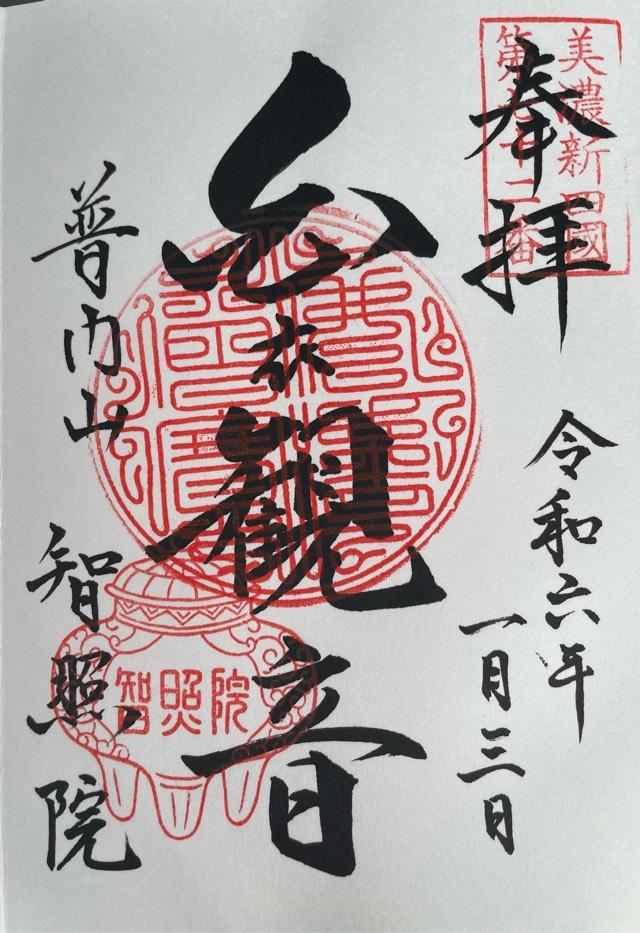 奉拝
美濃新四國
第七十二番
令和六年
一月三日
白衣観音
普門山
智照院
智照院